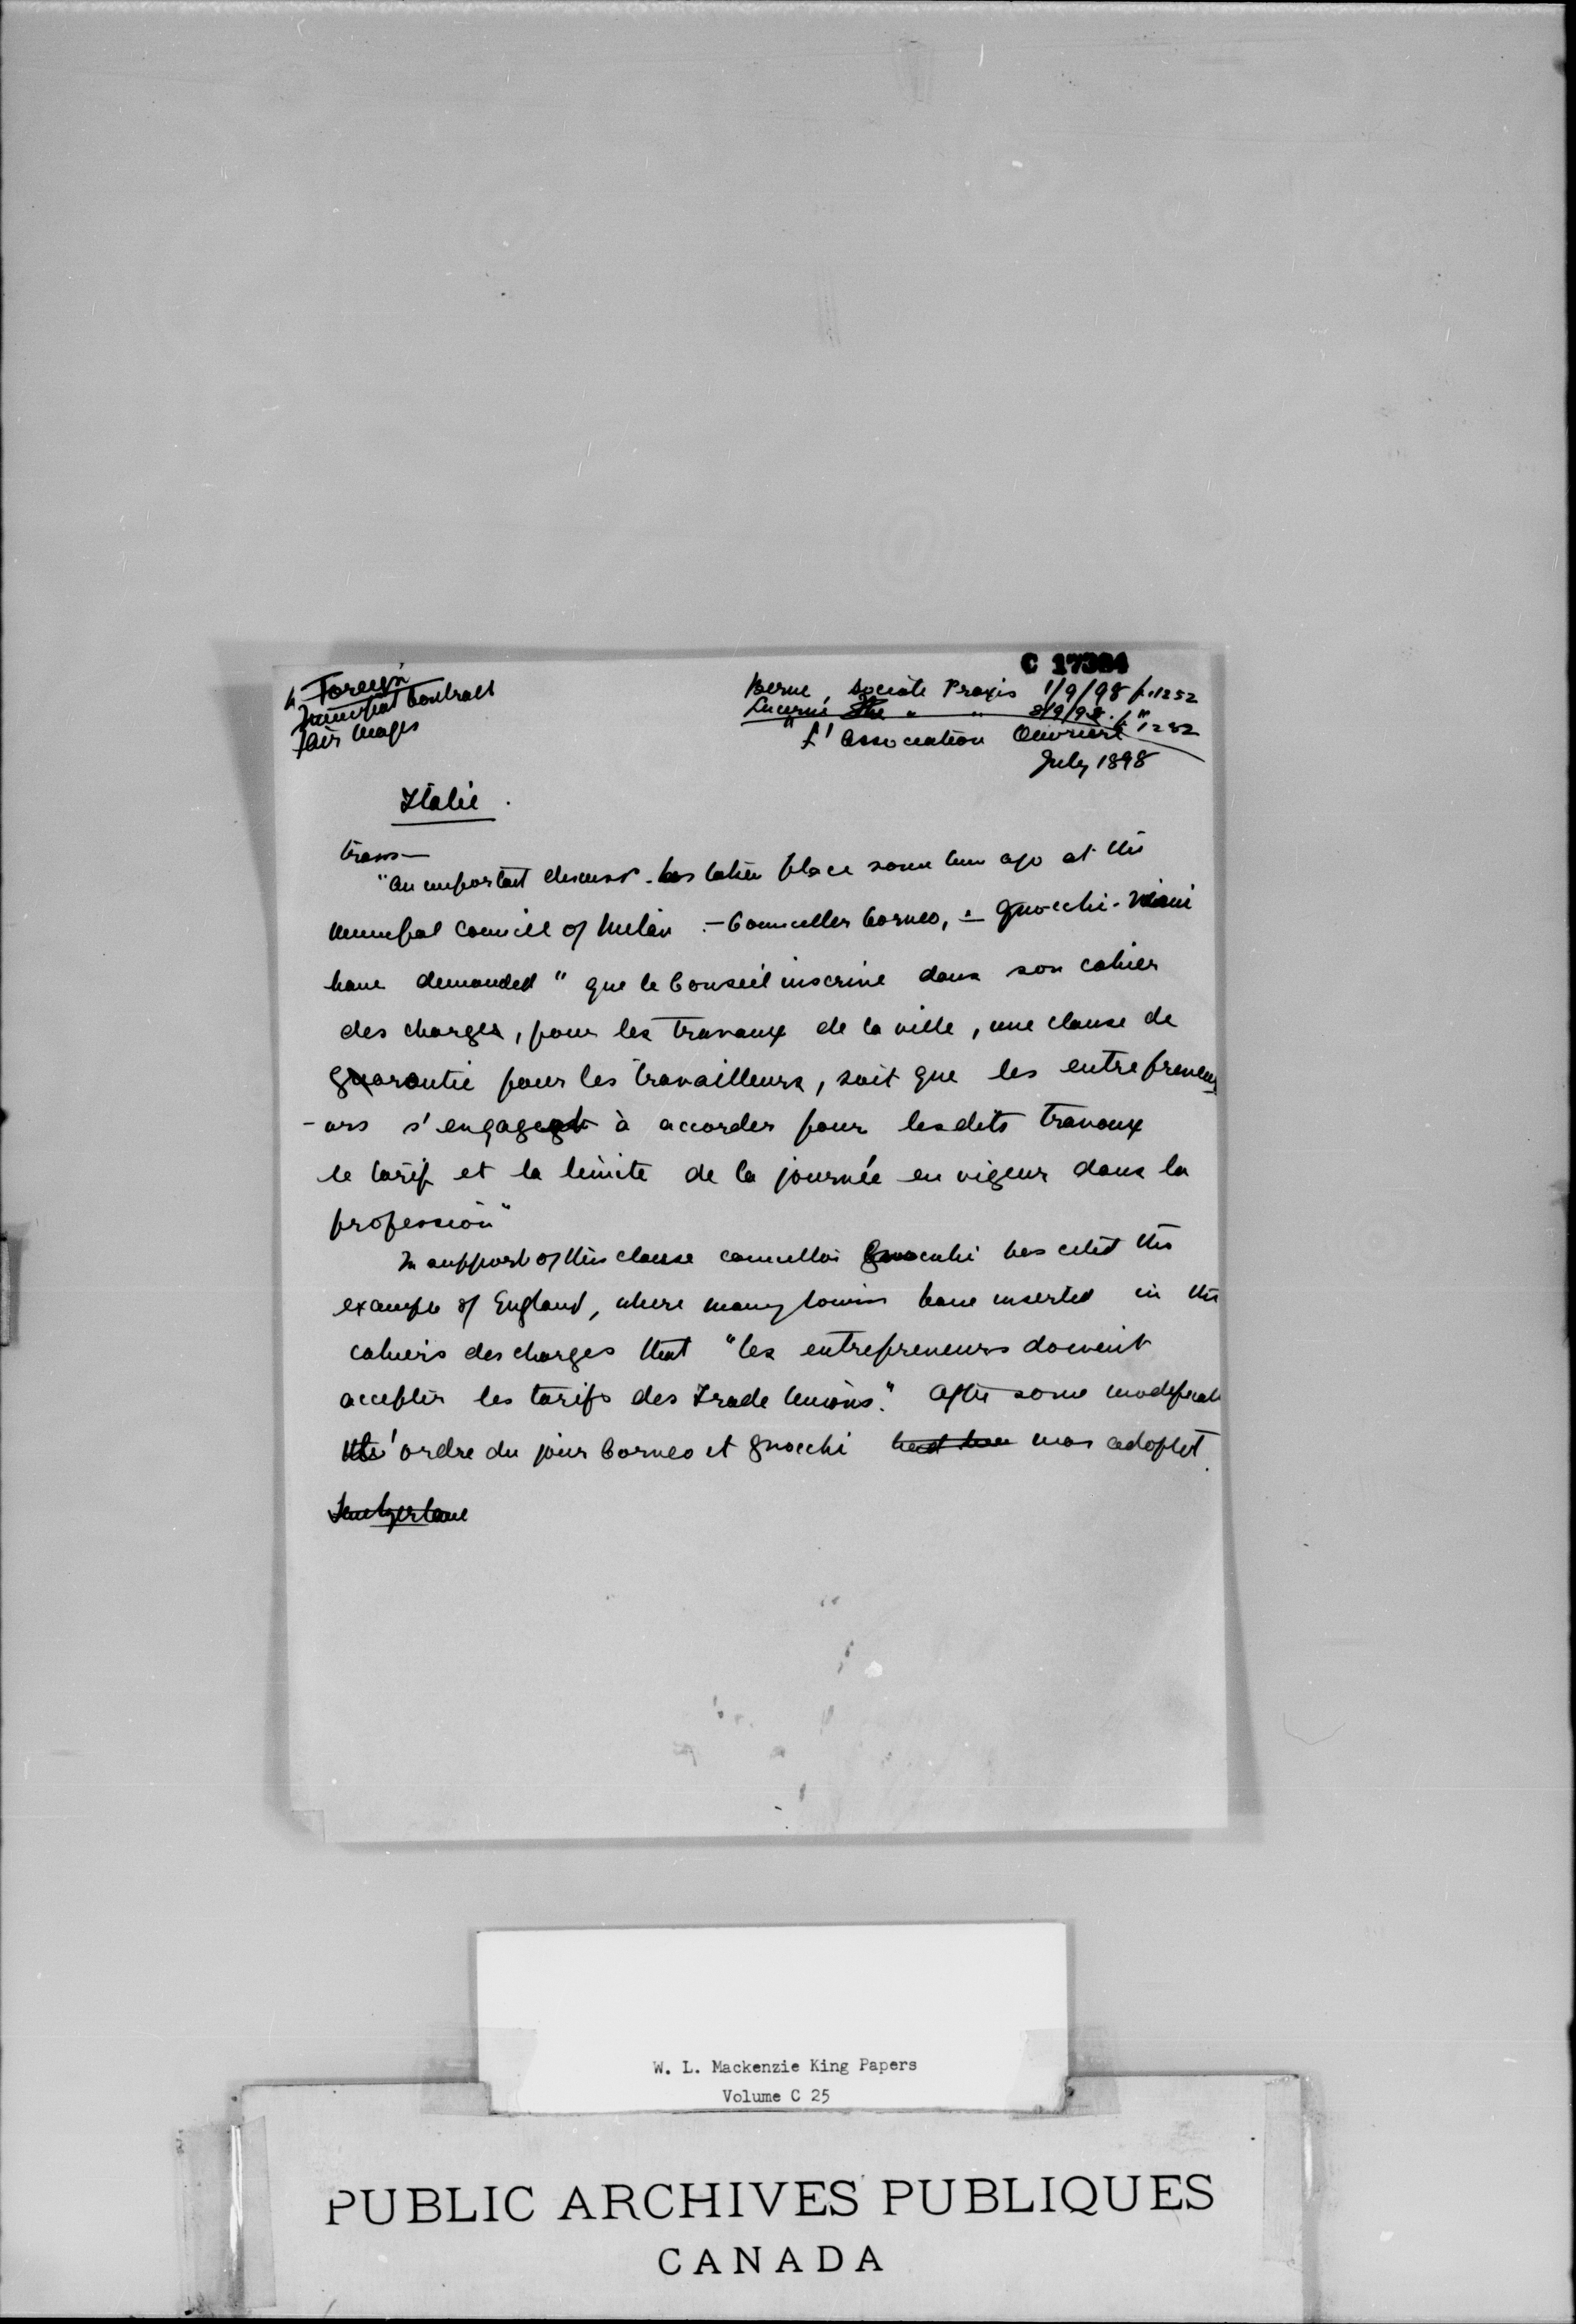 C 17384
Foreign
Municipal Contract
Fair Wages
Berne, Sociale Praxis 1/9/98 p. 1252
Lucerne " " 8/9/98. p. " 1282
L'Association Ouvriere
July 1898
Italie.
trans—
"An important discuss. has taken place some time ago at the
Municipal Council of Milan :- Counciller Corneo, & Gnocchi-Viani
have demanded "que le Conseil inscrive dans son cahier
des charges, pour les travaux de la ville, une clause de
garantie pour les travailleurs, soit que les entrepreneu
-urs s'engagent à accorder pour lesdits travaux
le tarif et la limite de la journée en vigeur dans la
profession"
In support of this clause councillor Gnocchi has cited the
example of England, where many towns have inserted in the
cahiers des charges that "les entrepreneurs doivent
accepter les tarifs des Trade Unions." After some modificat
l'ordre du jour Corneo et Gnocchi was adopted.
Switzerland
W. L. Mackenzie King Papers
Volume C 25
PUBLIC ARCHIVES PUBLIQUES
CANADA